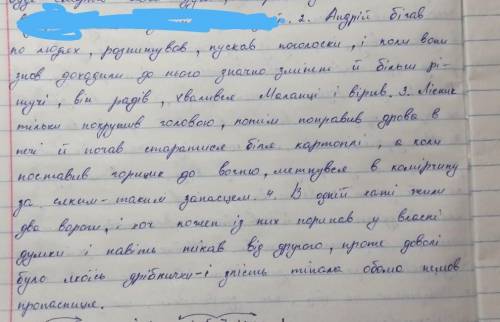 2. Андрій бігав
по людях, розпитував, пускав поголоски, і коли вони
знов доходили до нього значно змінені й більш рі-
шучі, він радів, хвалився Маланці і вірив. 3. Лісник
тільки покрутив головою, потім поправив дрова в
печі й почав старатися біля картоплі, а коли
поставив горщик до вогню, метнувся в комірчину
за сяким-таким запасцем. 4. В одній хаті жили
два вороги, і хоч кожен із них поринав у власні
думки і навіть тікав від другого, проте доволі
було якоїсь дрібнички-і злість тіпала обома немов
пропасниця.